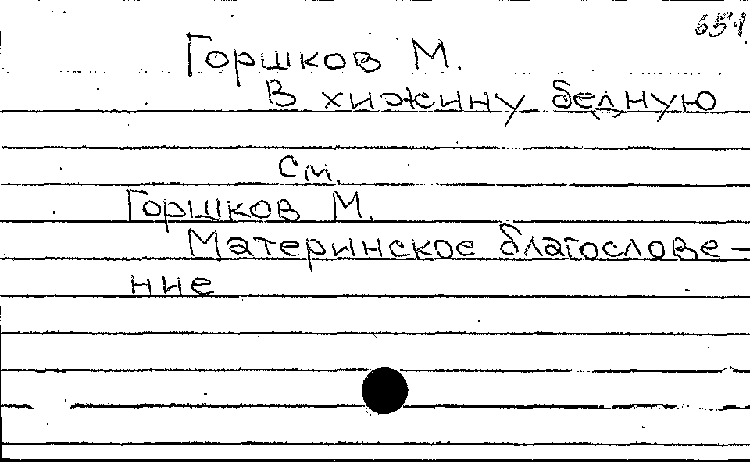 651
Горшков М.
В хижину бедную
см.
Горшков М.
Материнское благослове-
ние